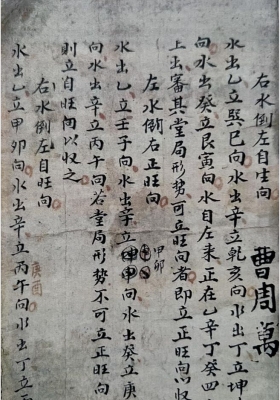 右水倒左自生向
曹周萬
水出乙立巽巳向水出辛立乾亥向水出丁立坤
向水出癸立艮寅向水自左来正在乙辛丁癸四
上出審其堂局形勢可立旺向者即立正旺向以收
左水倒右正旺向
甲卯
水出乙立壬子向水出辛立向水出癸立庚
向水出辛立丙午向若堂局形勢不可立正旺向
則立自旺向以收之
右水倒左自旺向
庚酉
水出乙立甲卯向水出辛立丙午向水出丁立